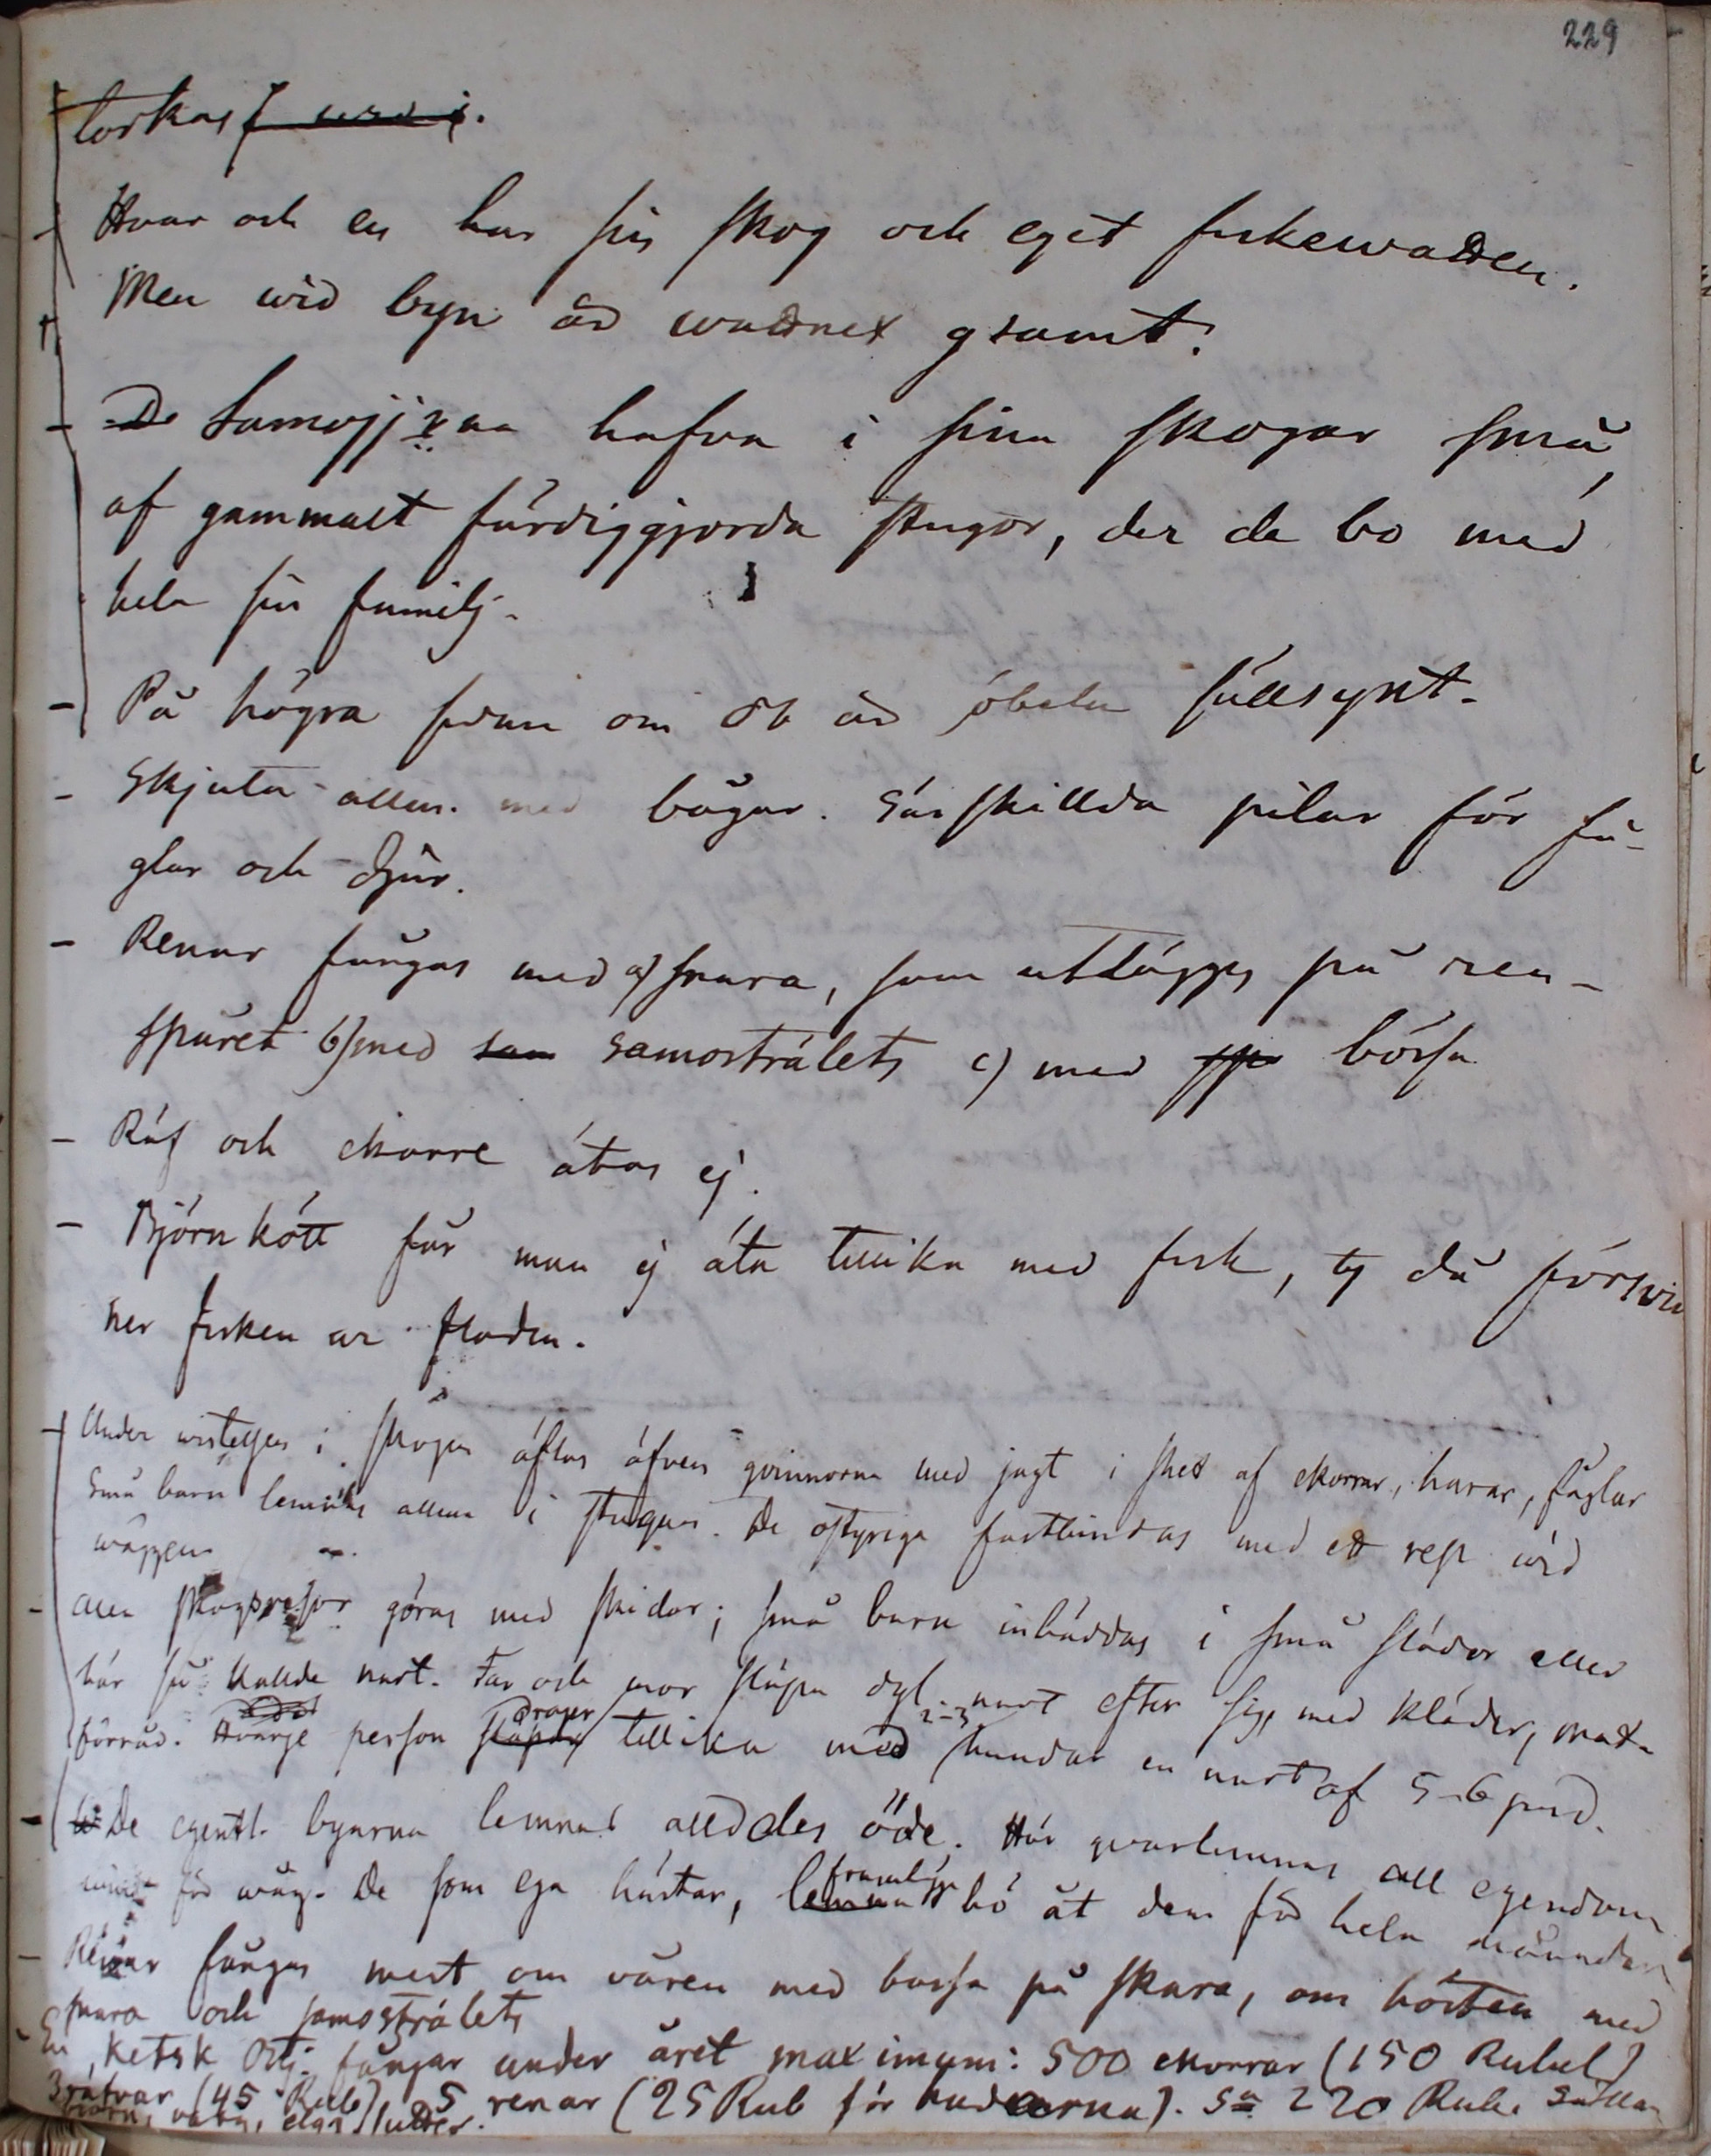 229
torkas
Hvar och en har sin skog och eget fiskewatten.
Men wid byn är wattnet gsamt.
De Samojj. hafva i sina skogar små,
af gammalt färdiggjorda stugor, der de bo med
hela sin familj.
På högra sidan om Ob är sobeln sällsynt.
Skjuta allm. med bågar. Särskillda pilar för få-
glar och djur.
Renar fångas med a) snara, som utlägges på ren-
spåret b) med sam samosträlets c) med bössa
Räf och ekorre ätas ej.
Björnkött får man ej äta tillika med fisk, ty då försvin
ner fisken ur floden.
Under wistelsen i skogen äflas äfven qvinnorna med jagt i stret af ekorrar, harar, fåglar
Små barn lemnas allena i stugan. De ostyriga fastbindas med ett rep wid
wäggen.
Alla skogsresor göras med skidor; små barn inbäddas i små slädor eller
här så kallde nart. Far och mor släpa dyl. nart efter sig, med kläder, mat-
förråd. Hvarje person släpar drager tillika med 2-3 hundar en nart af 5-6 pud.
De egentl. byarna lemnas alldeles öde. Här qvarlemnas all egendom
för wäg. De som ega hästar, lemna framlägga hö åt dem för hela månaden
Renar fångas mest om våren med bössa på skara, om hösten med
snara och samosträlets
En Ketsk Ostj. fångar under året maximum: 500 ekorrar (150 Rubel)
3 räfvar (45 Rub), 5 renar (25 Rub för hudarna). Sa 220 Rub. Sällan
björn, elgs hudar.